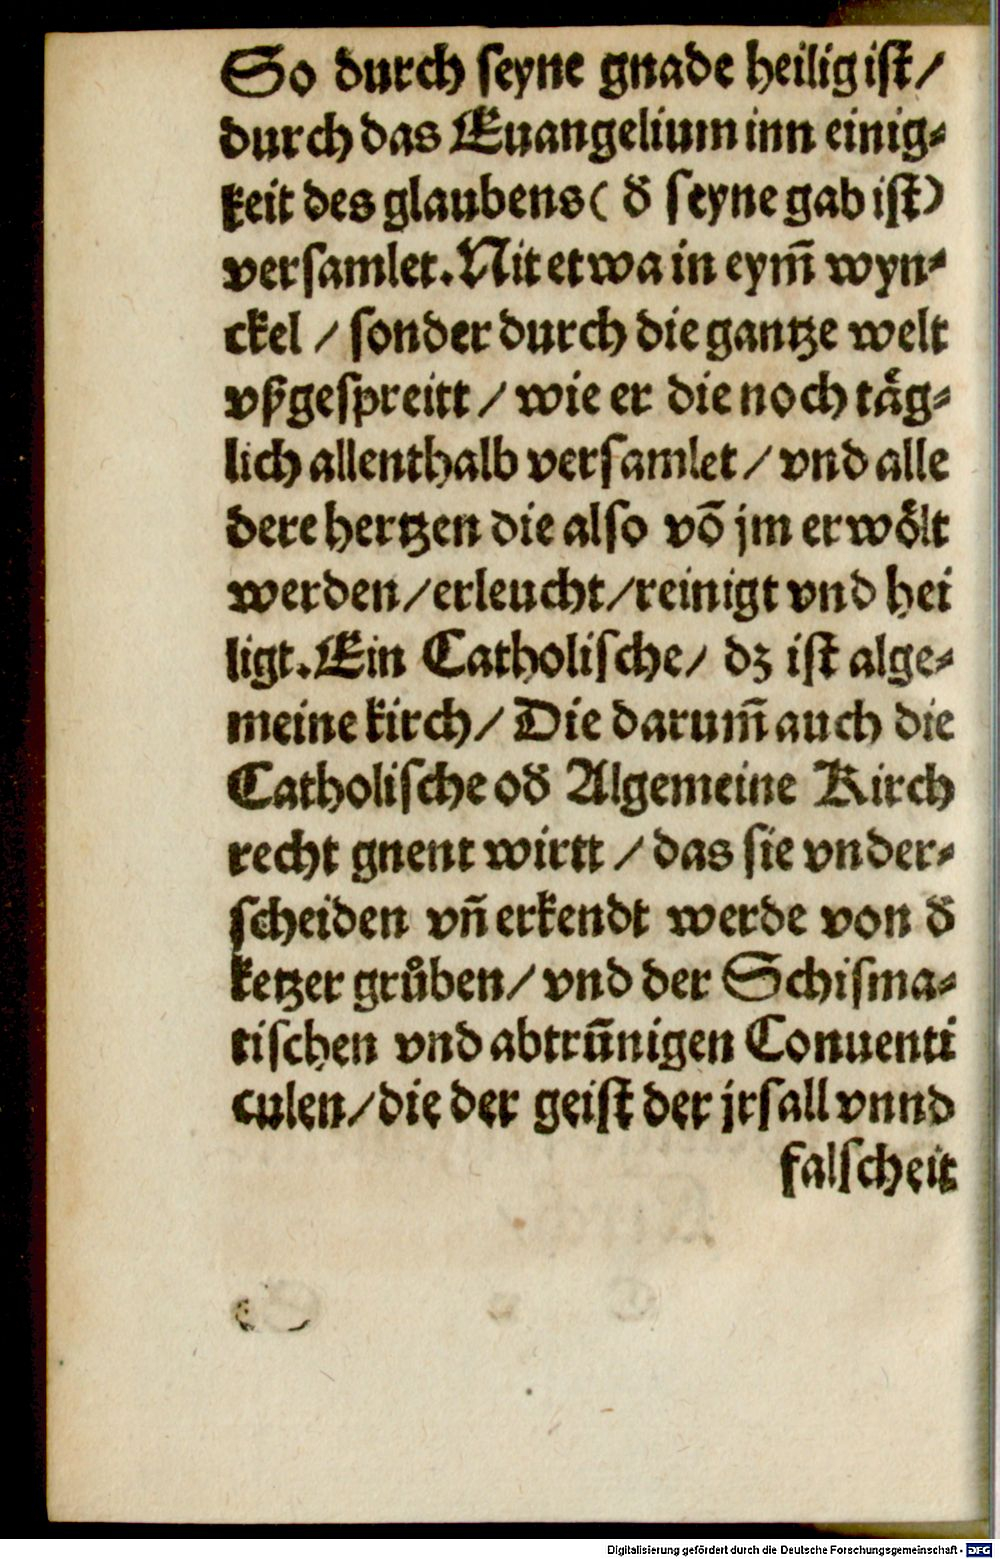 So durch ſeyne gnade heilig iſt /
durch das Euangelium inn einig⸗
keit des glaubens ( d̄ ſeyne gab iſt )
verſamlet. Nit etwa in eym̄ wyn⸗
ckel / ſonder durch die gantze welt
vßgeſpreitt / wie er die noch taͤg⸗
lich allenthalb verſamlet / vnd alle
dere hertzen die alſo võ jm erwoͤlt
werden / erleucht / reinigt vnd hei
ligt. Ein Catholiſche / dz iſt alge⸗
meine kirch / Die darum̄ auch die
Catholiſche od̄ Algemeine Kirch
recht gnent wirtt / das ſie vnder⸗
ſcheiden vn̄ erkendt werde von d̄
ketzer gruͦben / vnd der Schiſma⸗
tiſchen vnd abtrūnigen Conuenti
culen / die der geiſt der jrſall vnnd
falſcheit
Digitalisierung gefördert durch die Deutsche Forschungsgemeinschaft - DFG